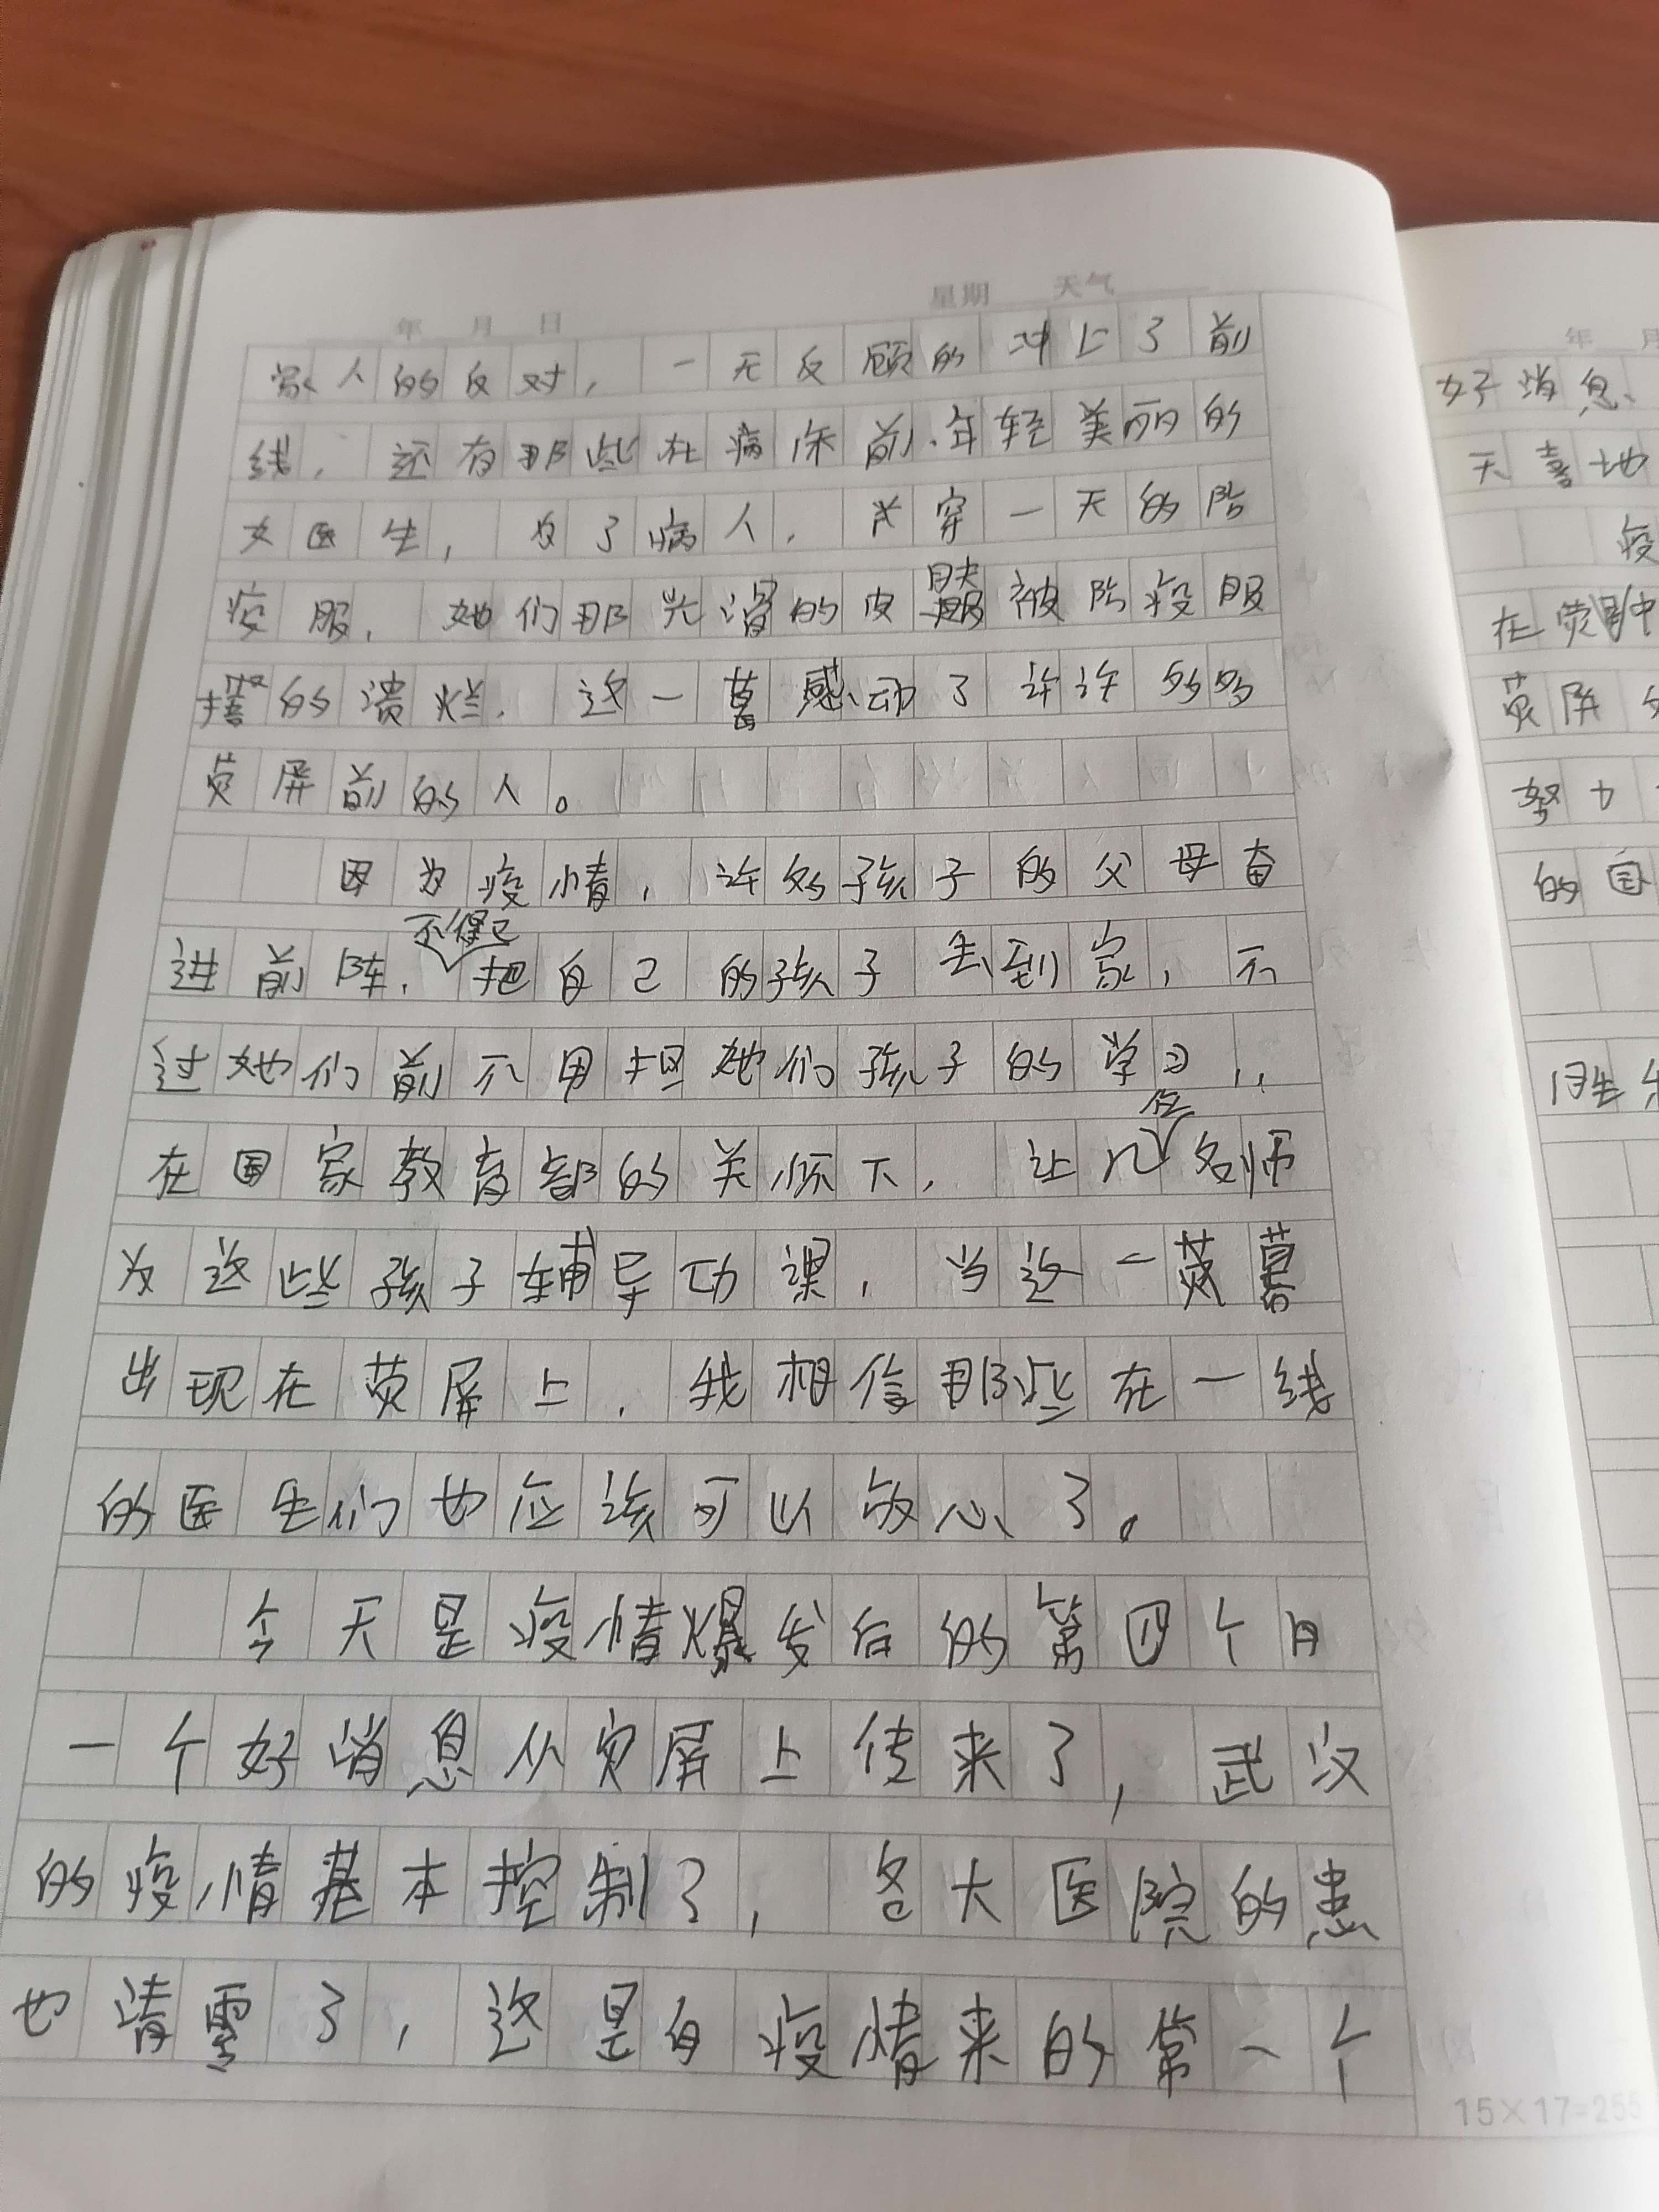 年 月 日 星期 天气
家人的反对，一无反顾的冲上了前
线，还有那些在病床前、年轻美丽的
女医生，为了病人，穿一天的防
疫服，她们那光滑的皮肤被防疫服
的溃烂，这一幕感动了许许多多
荧屏前的人。
因为疫情，许多孩子的父母奋
进前阵，不得已把自己的孩子丢到家，不
过她们前不用担她们孩子的学习，
在国家教育部的关怀下，让几位名师
为这些孩子辅导功课，当这一荧幕
出现在荧屏上，我相信那些在一线
的医生们也应该可以放心了。
今天是疫情爆发后的第四个月
一个好消息从荧屏上传来了，武汉
的疫情基本控制了，各大医院的患
也清零了，这是自疫情来的第一个
15×17=255
年 月
好消息、
天喜地
疫
在荧屏中
荧屏
努力
的国